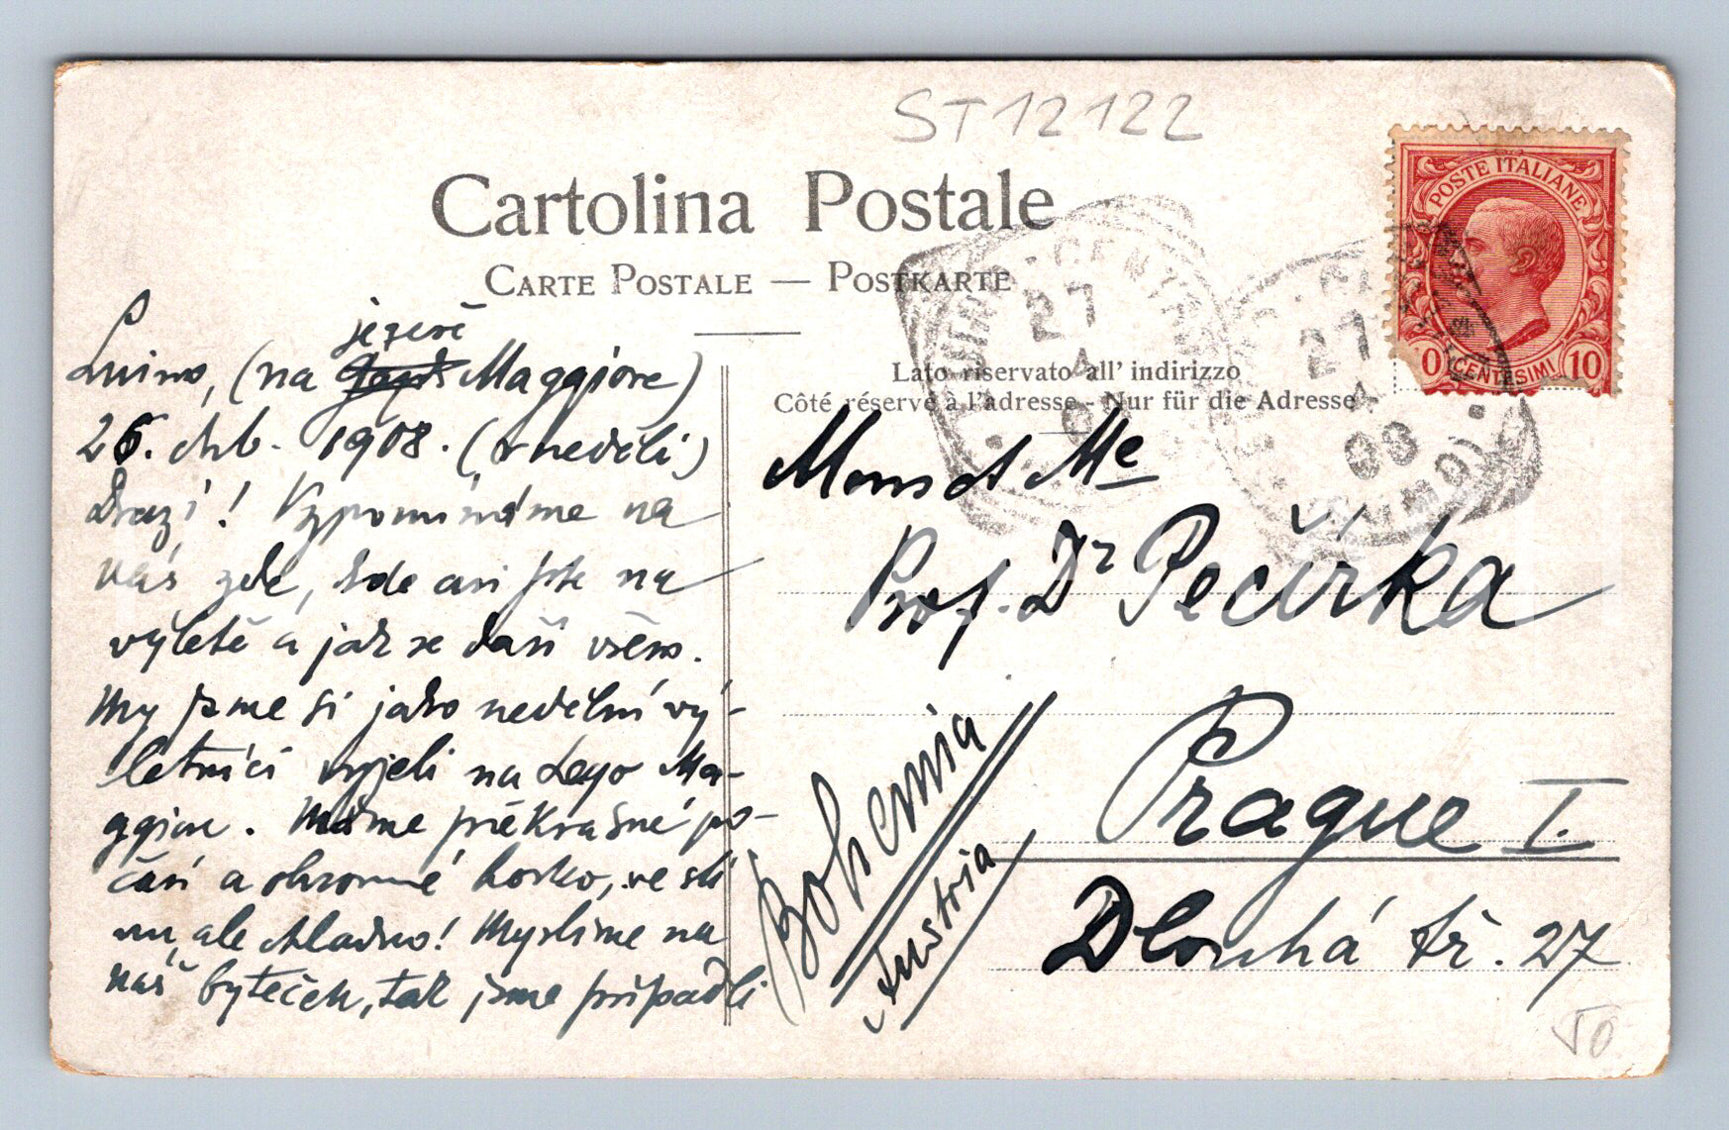 ST12122
Cartolina Postale
CARTE POSTALE — POSTKARTE
POSTE ITALIANE
10 CENTESIMI 10
27
4
27
4
08
Lato riservato all' indirizzo
Côté réservé à l'adresse - Nur für die Adresse
jezeře
Luino, (na Maggiore)
26. dub. 1908. (v neděli)
Drazí! Vzpomínáme na
Vás zde, kde asi jste na
výletě a jak se daří všem.
My jsme si jako nedělní vý-
letníci vyjeli na Lago Ma-
ggiore. Máme překrásné po-
časí a ohromné horko, ve stí
nu, ale chladno! Myslíme na
náš byteček, tak jsme připadli
Mons et Me
Prof. Dr Pečírka
Prague I.
Dlouhá tř. 27
Bohemia
Austria
50